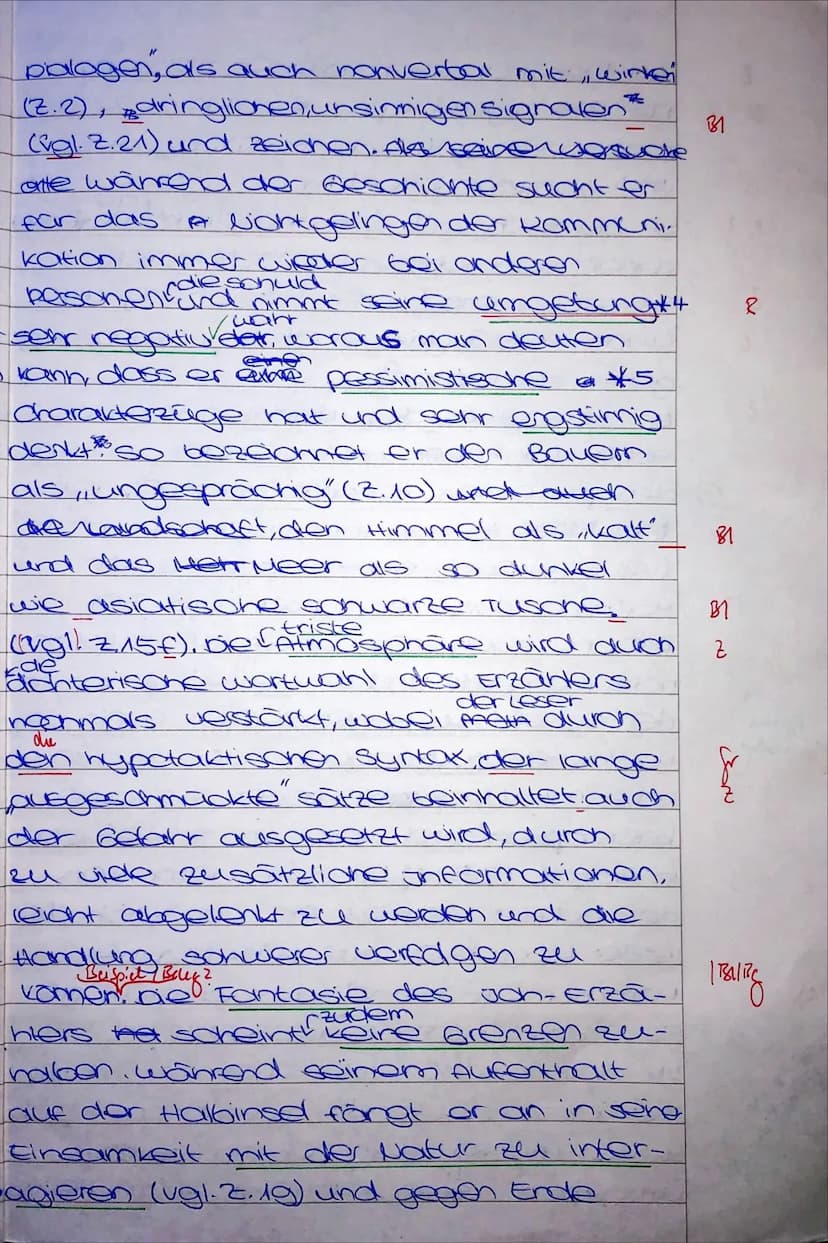 Dialogen", als auch nonverbal mit „winken
(Z.2), dringlichen, unsinnigen Signalen"
(vgl. Z.21) und Zeichen. Als seine Versuche
B1
während der Geschichte sucht er
für das Nichtgelingen der Kommuni-
kation immer wieder bei anderen
die schuld
Personen und nimmt seine umgebung *4
R
war
sehr negativ, woraus man deuten
einen
kann, dass er pessimistische *5
Charakterzüge hat und sehr engstirnig
denkt. So bezeichnet er den Bauern
als „ungesprächig" (Z.10) und auch
die Landschaft, den Himmel als „kalt"
B1
und das Meer als so dunkel
wie asiatische schwarze Tusche.
B1
triste
(vgl! Z.15f). Die Atmosphäre wird duch
Z
die
dichterische Wortwahl des Erzählers
der Leser
nochmals verstärkt, wobei durch
die
den hypotaktischen Syntax, der lange
Gr
„ausgeschmückte" Sätze beinhaltet auch
Z
der Gefahr ausgesetzt wird, durch
zu viele zusätzliche Informationen,
leicht abgelenkt zu werden und die
Handlung schwerer verfolgen zu
Beispiel / Beleg?
können. Die Fantasie des Ich-Erzä-
zudem
hlers scheint keine Grenzen zu-
haben. Während seinem Aufenthalt
auf der Halbinsel fängt er an in seine
Einsamkeit mit der Natur zu inter-
agieren (vgl. Z.19) und gegen Ende